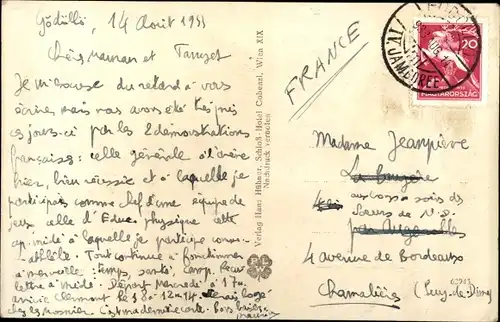 Gödöllö, 14 Août 1933
Chers Maman et
Je m'excuse du retard à vous
écrire mais nous avons été très pris
ces jours-ci par les 2 démonstrations
françaises : celle générale d'
hier, bien réussie et à laquelle je
participais comme chef d'une équipe de
jeux, celle d'Educ. physique cette
ap. midi à laquelle je participe comme
athlète. Tout continue à fonctionner
à merveille : temps, santé, camp. Reçu
lettre à midi. Départ Mercredi à 17h.
arrivée Clermont le
chez les Mosnier. C'est ma dernière carte. Bons baisers
Verlag Hans Hübner, Schloß-Hotel Cobenzl, Wien XIX
Nachdruck verboten
FRANCE
JAMBOREE
20
MAGYARORSZÁG
Madame Jeanpierre
aux bons soins des
Soeurs de N.D.
4 avenue de Bordeaux
Chamalières (Puy-de-Dôme)